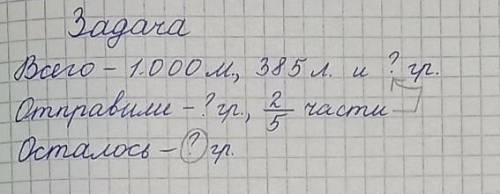 Задача
Всего - 1.000 м., 385 л. и ? гр.
Отправили - ? гр., 2/5 части
Осталось - ? гр.